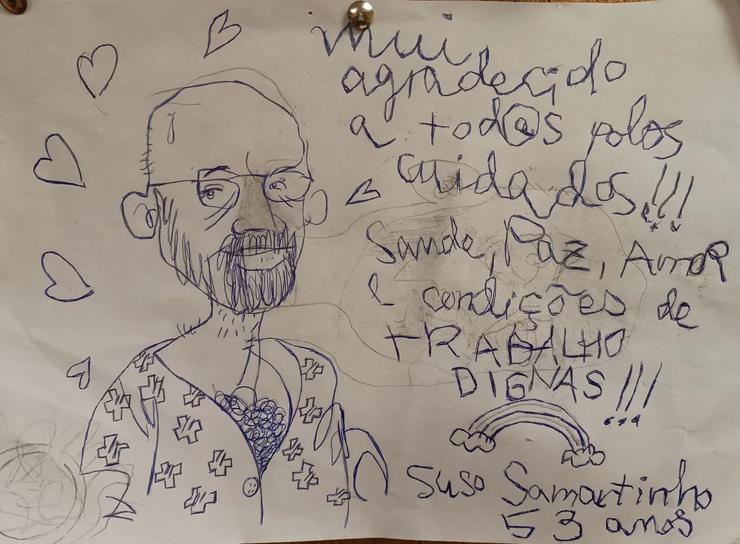 mui
agradecido
a tod@s polos
cuidados!!!
Saude, Paz, Amor
e condições de
tRABALHO
DIGNAS!!!
Suso Samartinho
53 anos